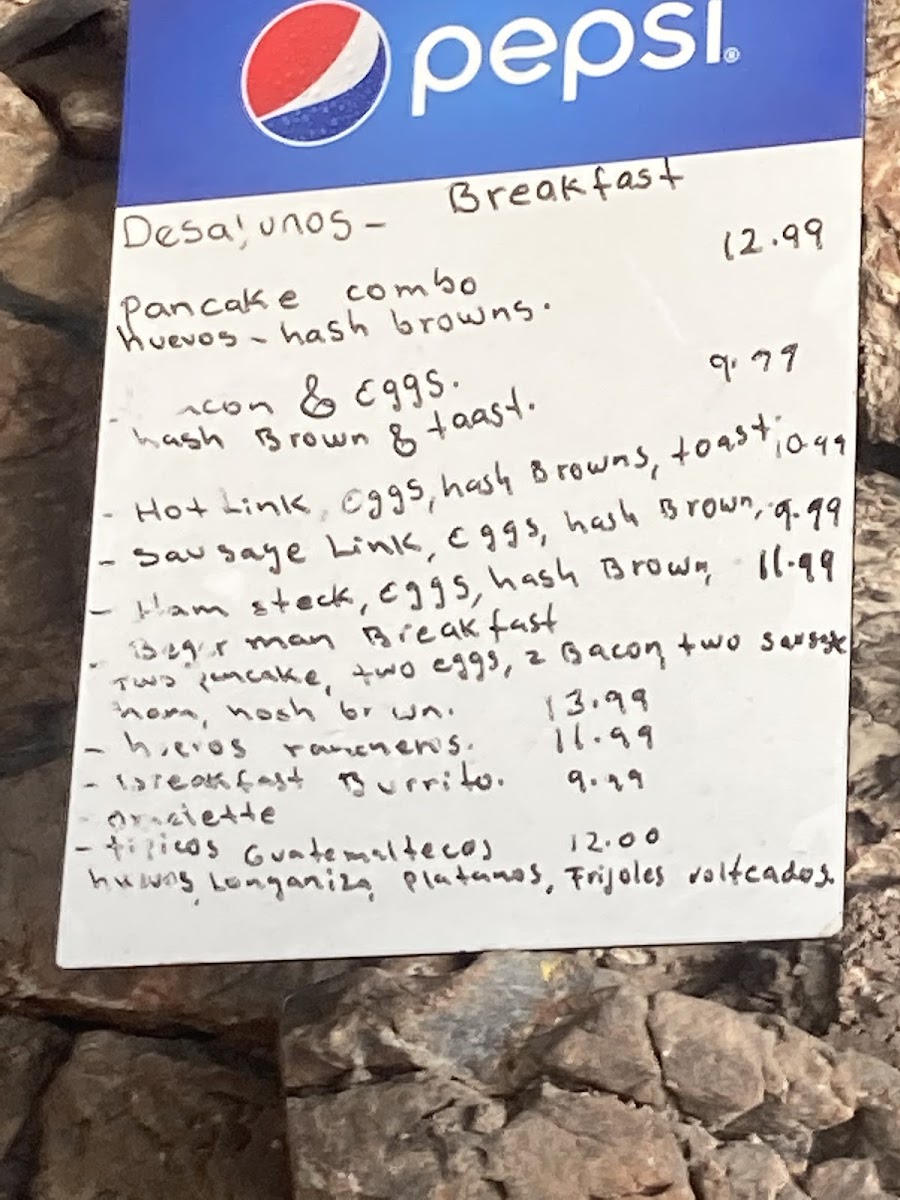 pepsi®
Desajunos - Breakfast
Pancake combo 12.99
huevos - hash browns.
acon & Eggs. 9.99
hash Brown & taast.
- Hot Link, Eggs, hash Browns, toast, 10.99
- Sausage Link, Eggs, hash Brown, 9.99
- Ham steck, Eggs, hash Brown, 11.99
- man Breakfast
Two pancake, two eggs, 2 Bacon, two sausage
ham, hash br wn. 13.99
- huevos rancheros. 11.99
- breakfast Burrito. 9.99
- omelette
- tipicos Guatemaltecos 12.00
huevos, Longaniza, Platanos, Frijoles volteados.